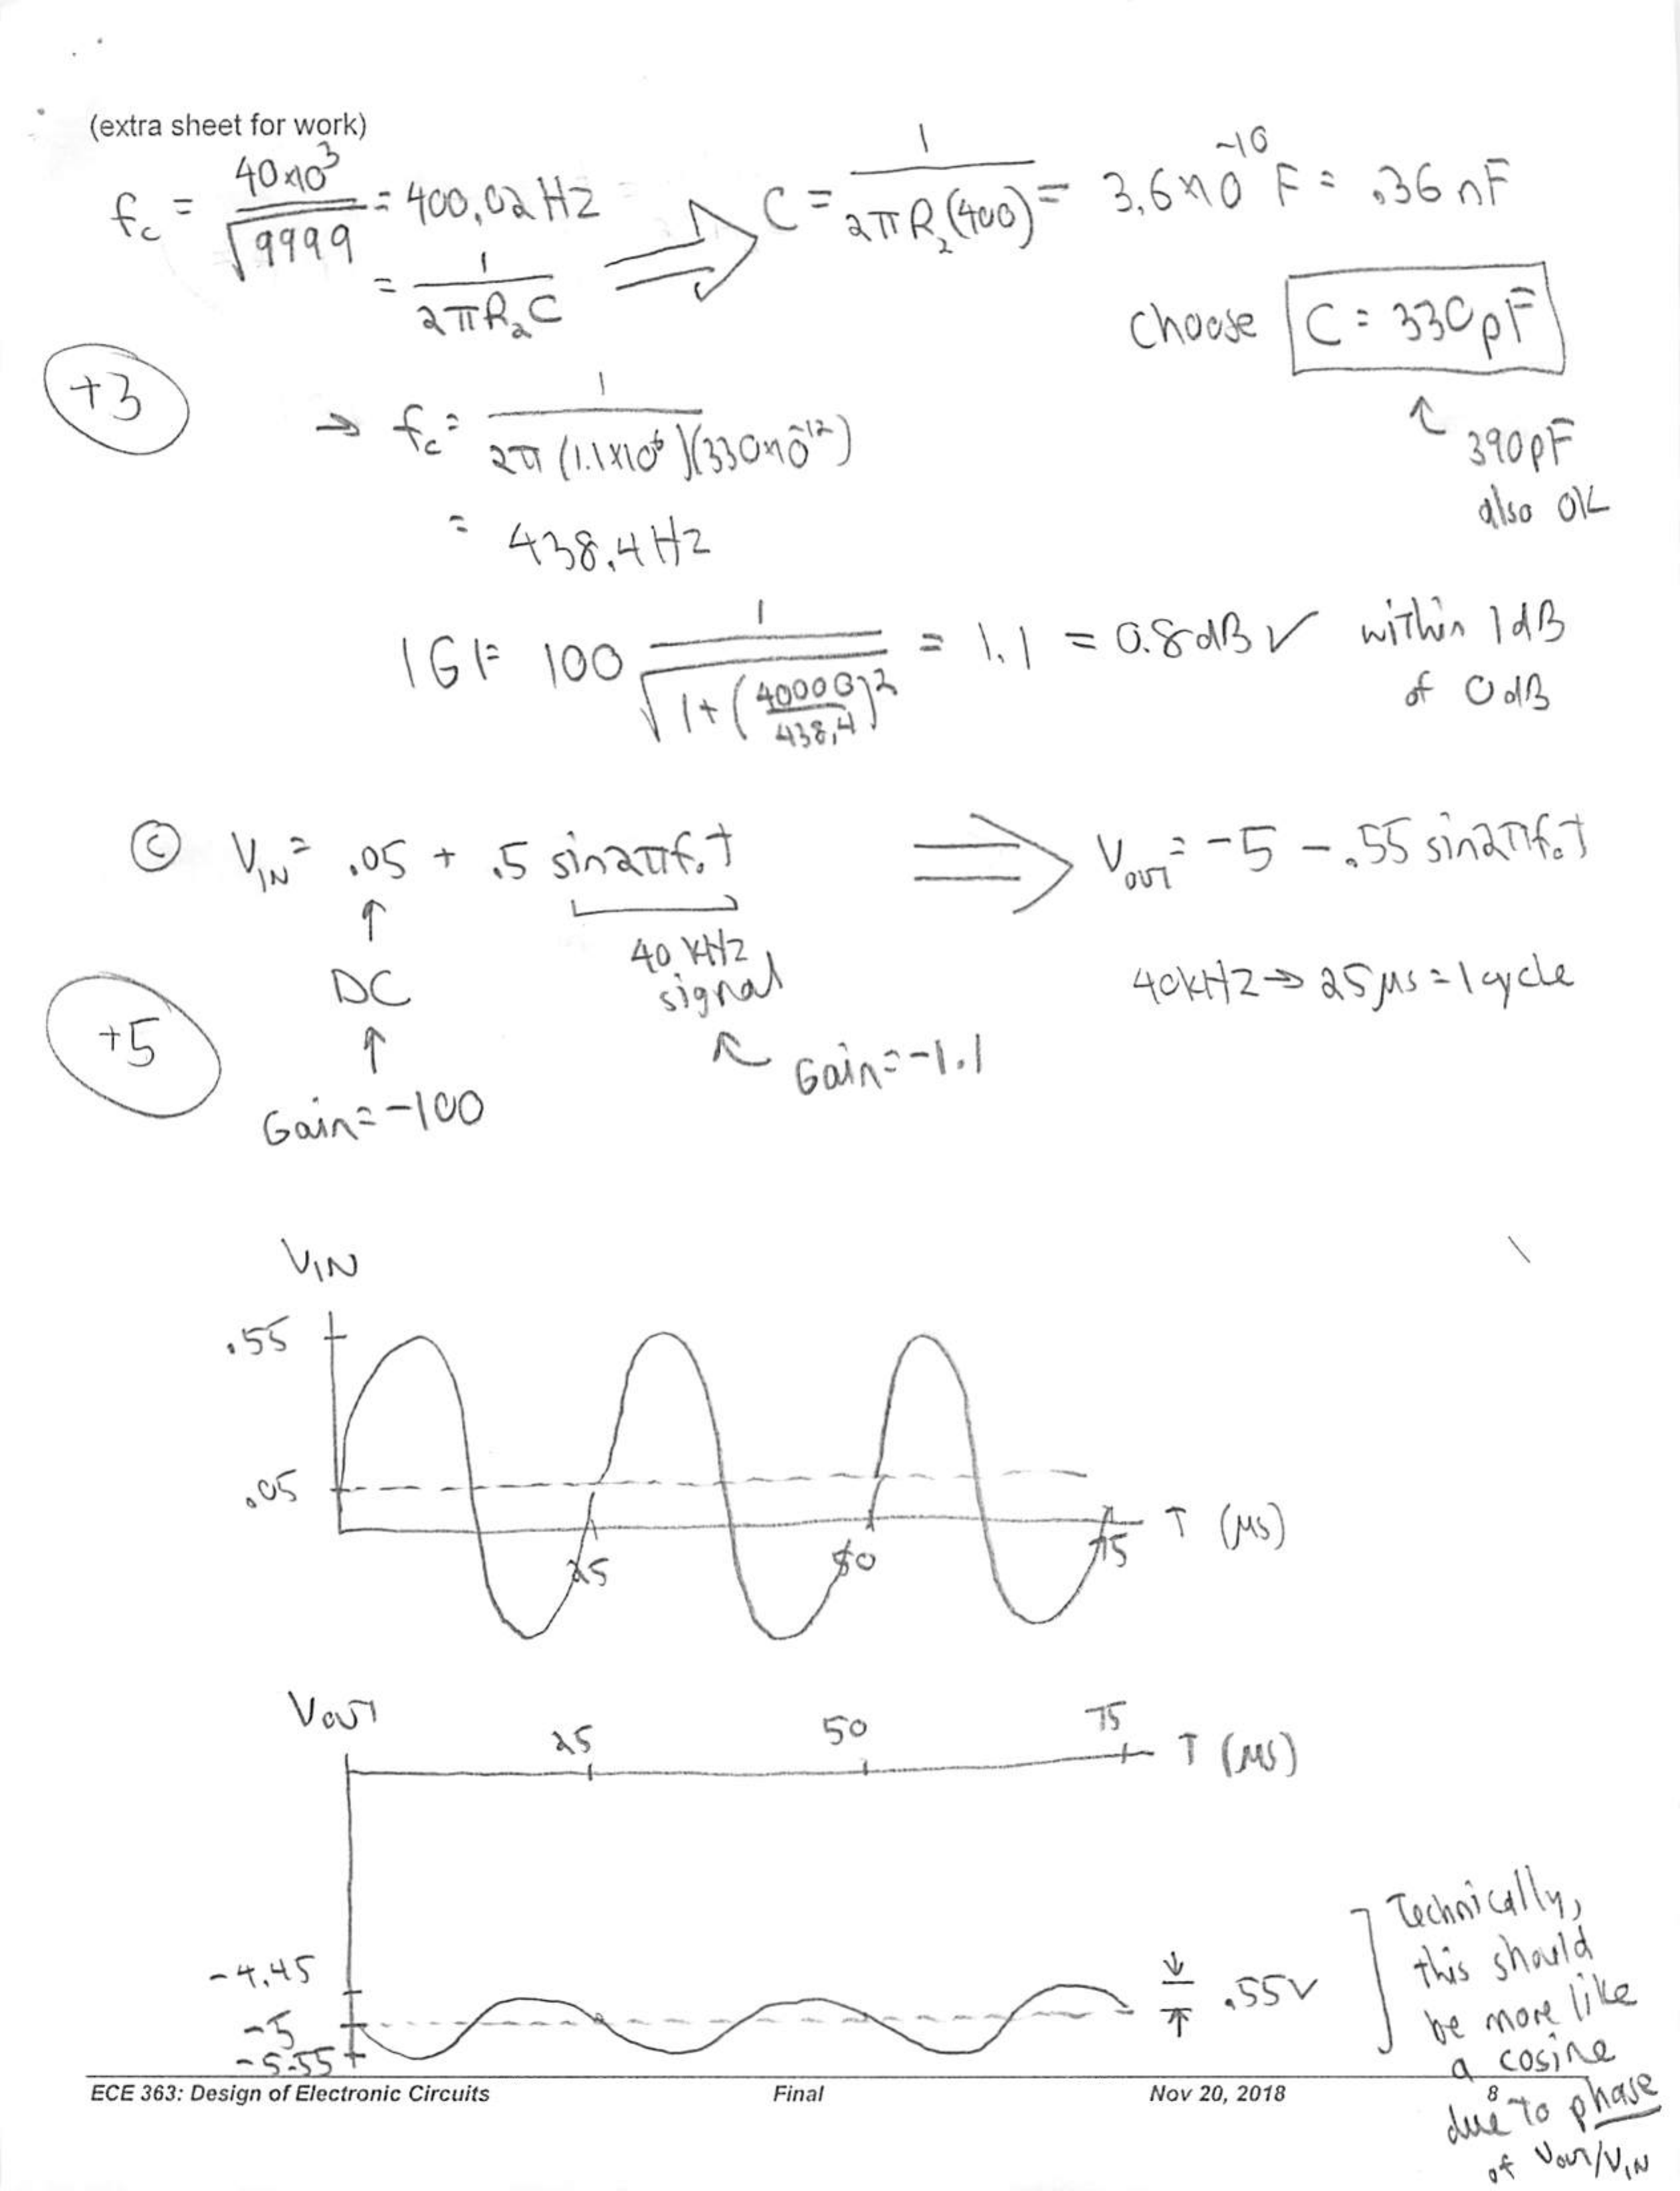 (extra sheet for work)
fc = 40×10³ / √9999 = 400.02 Hz
= 1 / 2πR₂C
⇒ C = 1 / 2πR₂(400) = 3.6×10⁻¹⁰ F = .36 nF
Choose C = 330pF
↑ 390pF
also OK
+3
→ fc = 1 / 2π(1.1×10⁶)(330×10⁻¹²)
= 438.4 Hz
|G| = 100 1 / √1+(40000/438.4)² = 1.1 = 0.8dB ✓ within 1dB
of 0dB
Ⓒ VIN = .05 + .5 sin2πf₀t ⇒ VOUT = -5 - .55 sin2πf₀t
↑ DC
40 kHz
signal
40kHz → 25μs = 1 cycle
+5
↑ Gain = -100
↖ Gain = -1.1
VIN
.55
.05
25 50 75 T (μs)
VOUT
25 50 75 T (μs)
-4.45
-5
-5.55
.55V
Technically,
this should
be more like
a cosine
due to phase
of VOUT/VIN
ECE 363: Design of Electronic Circuits Final Nov 20, 2018 8